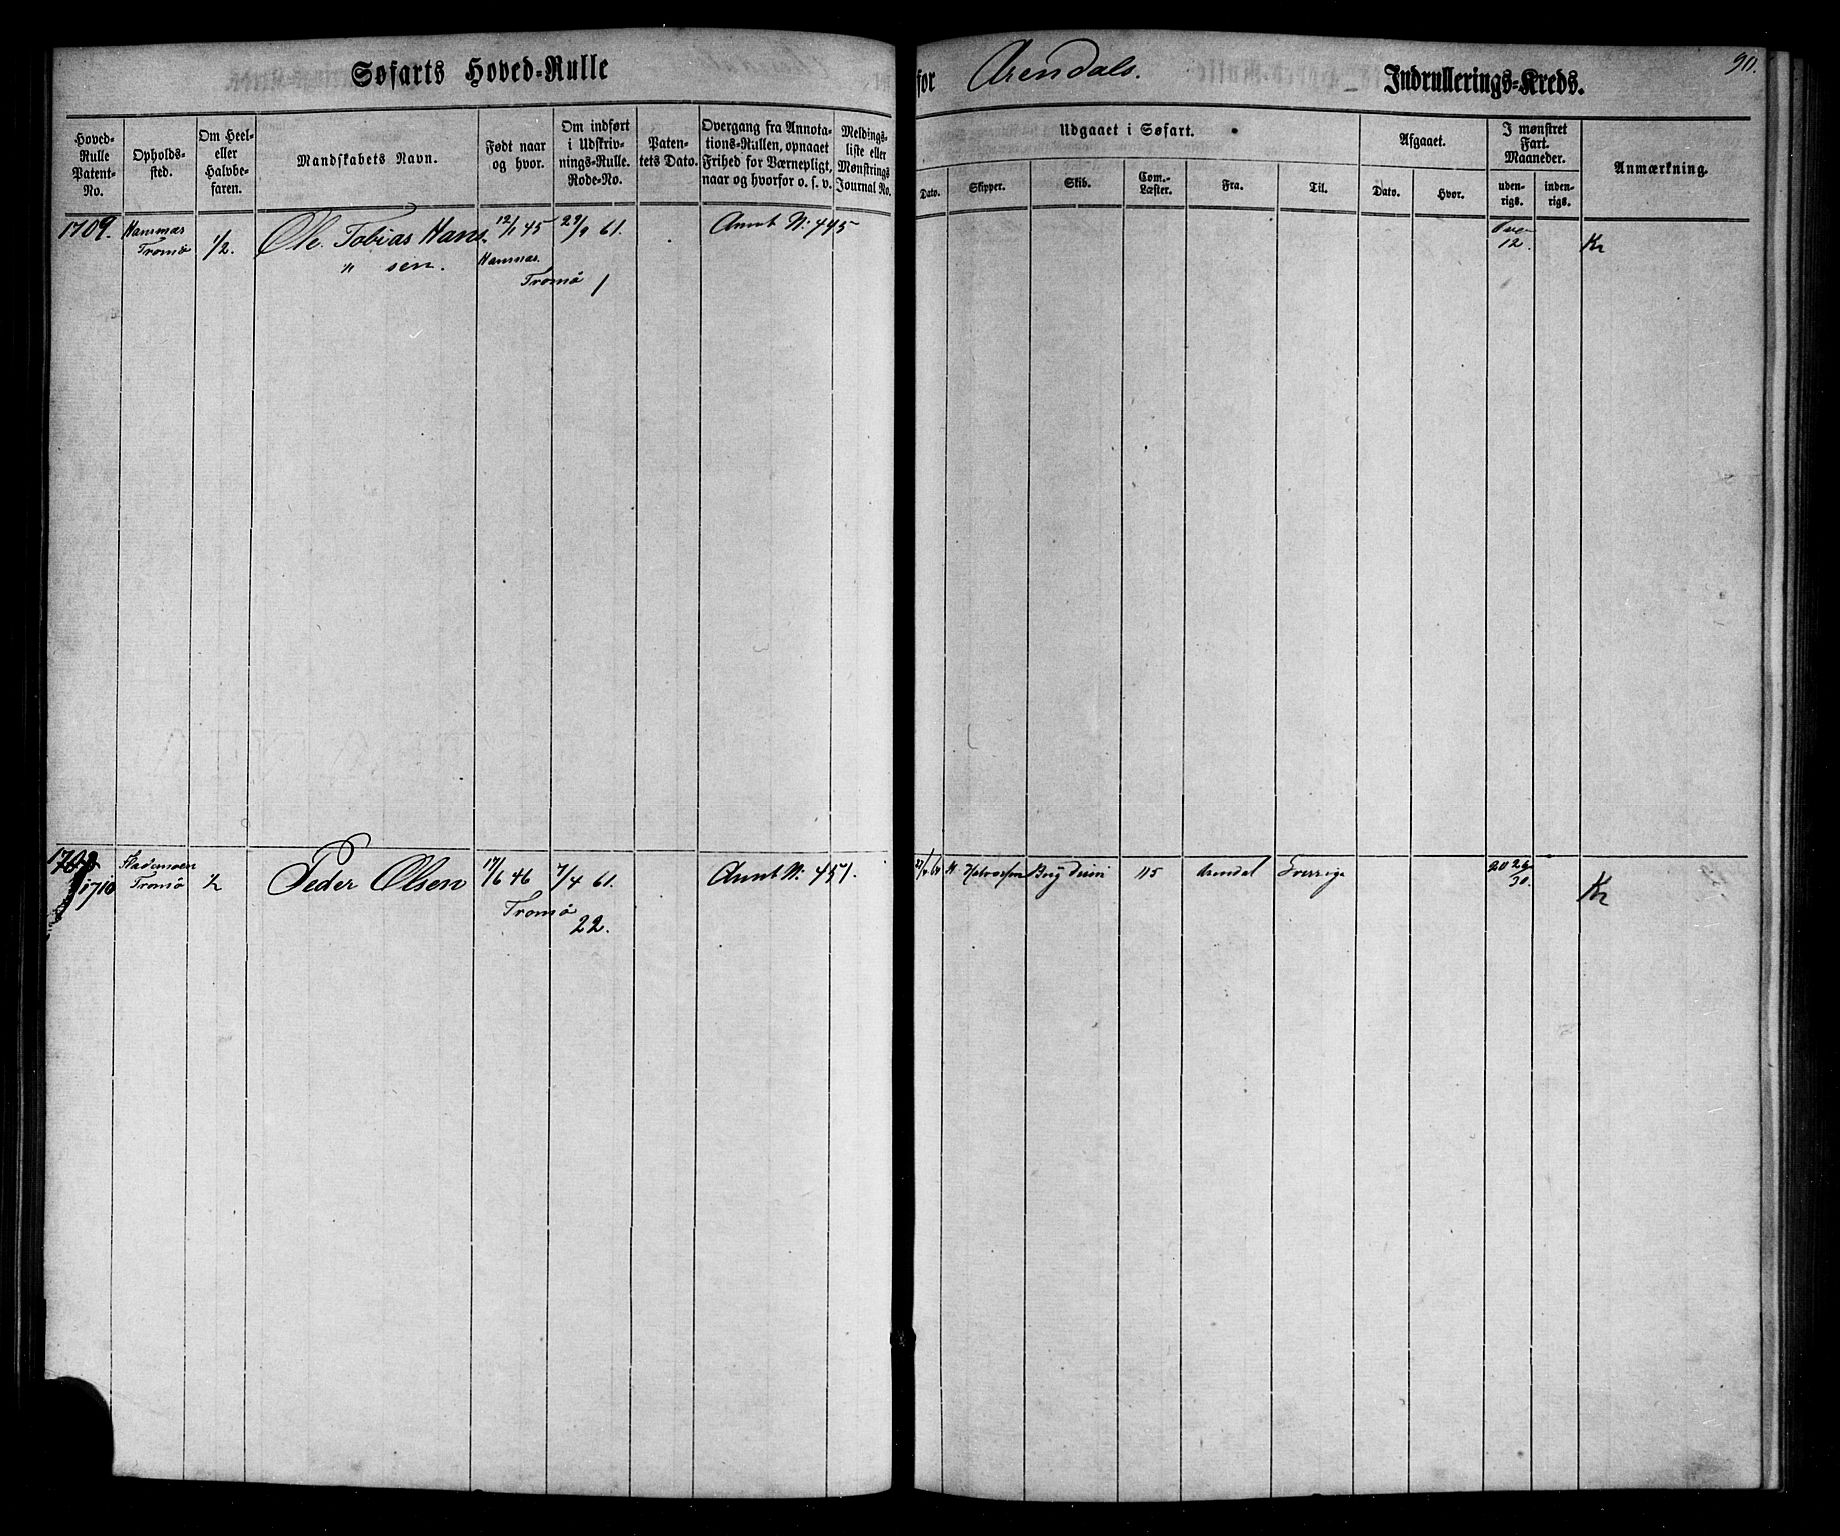 Søfarts Hoved-Rulle
for Arendals. Indrullerings-Kreds.
90.
Hoved-
Rulle
Patent-
No.
Opholds-
sted.
Om Heel-
eller
Halvbe-
faren.
Mandskabets Navn.
Født naar
og hvor.
Om indført
i Udskriv-
nings-Rulle.
Rode-No.
Paten-
tets Dato.
Overgang fra Annota-
tions-Rullen, opnaaet
Frihed for Værnepligt,
naar og hvorfor o. s. v.
Meldings-
liste eller
Mønstrings
Journal No.
Udgaaet i Søfart.
Dato.
Skipper.
Skib.
Com.-
Læster.
Fra.
Til.
Afgaaet.
Dato.
Hvor.
I mønstret
Fart.
Maaneder.
uden-
rigs.
inden-
rigs.
Anmærkning.
1709. Hammas 12/1 45 29/9 61. Annt N: 445
Tromø 1/2. Ole Tobias Hans-
" sen. Hammas.
Tromø 1
over
12. Kr
1710 Tromø 1/2 Peder Olsen 17/6 46 7/4 61. Annt N: 451.
Tromø 22.
115 Arendal Sverrige
20 26
30. Kr